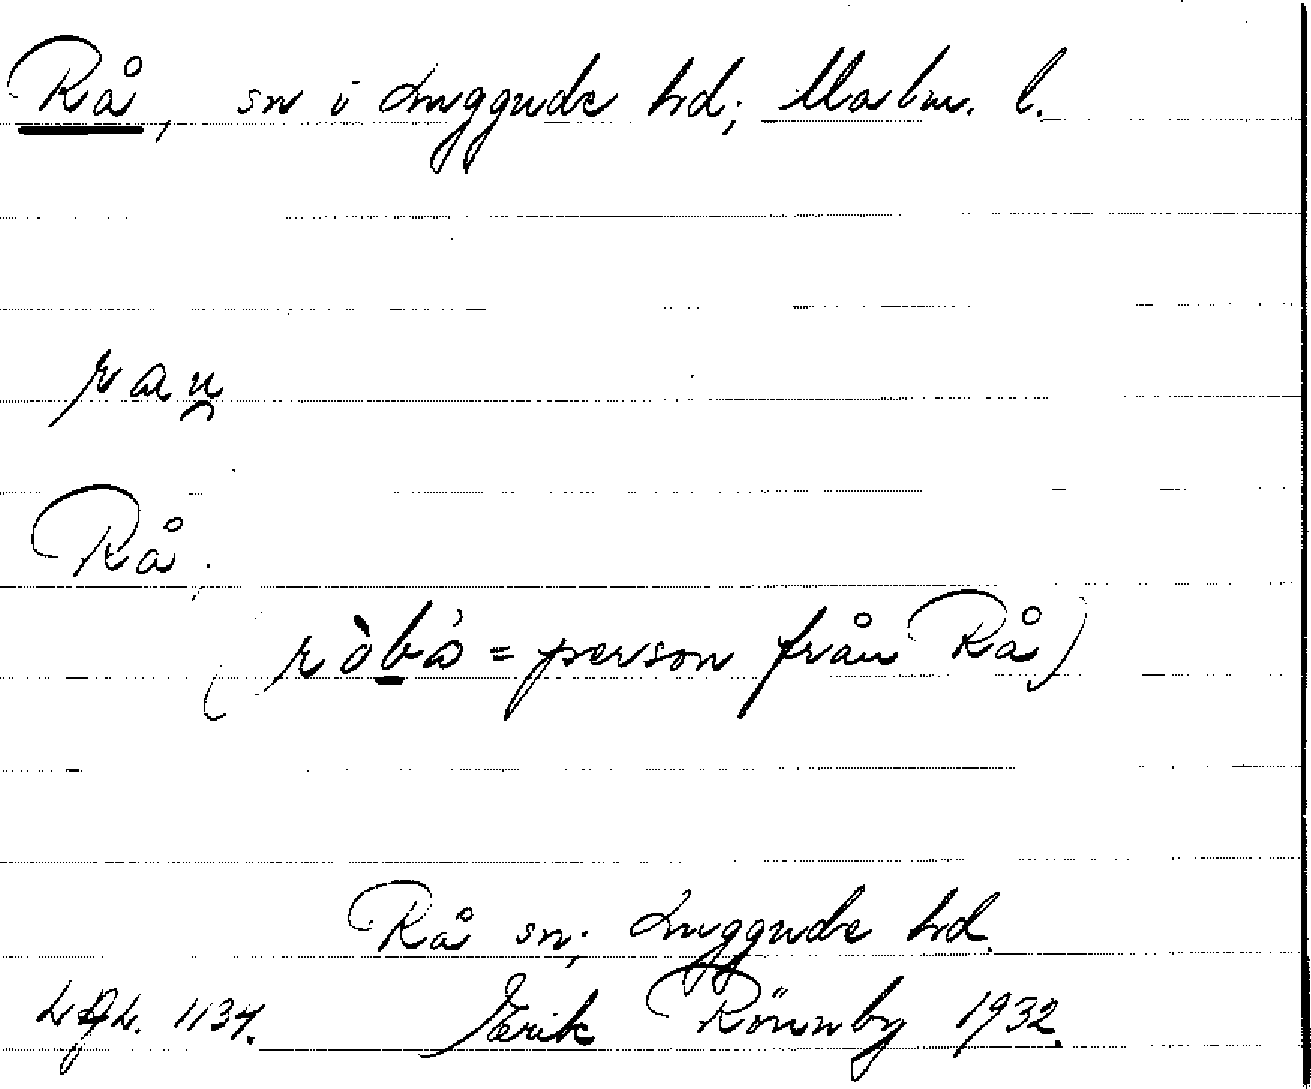 Rå, sn i Luggude hd; Malm. l.
rau̯
Rå.
(ròbó = person från Rå)
Rå sn; Luggude hd.
1134. Erik Rönnby 1932.